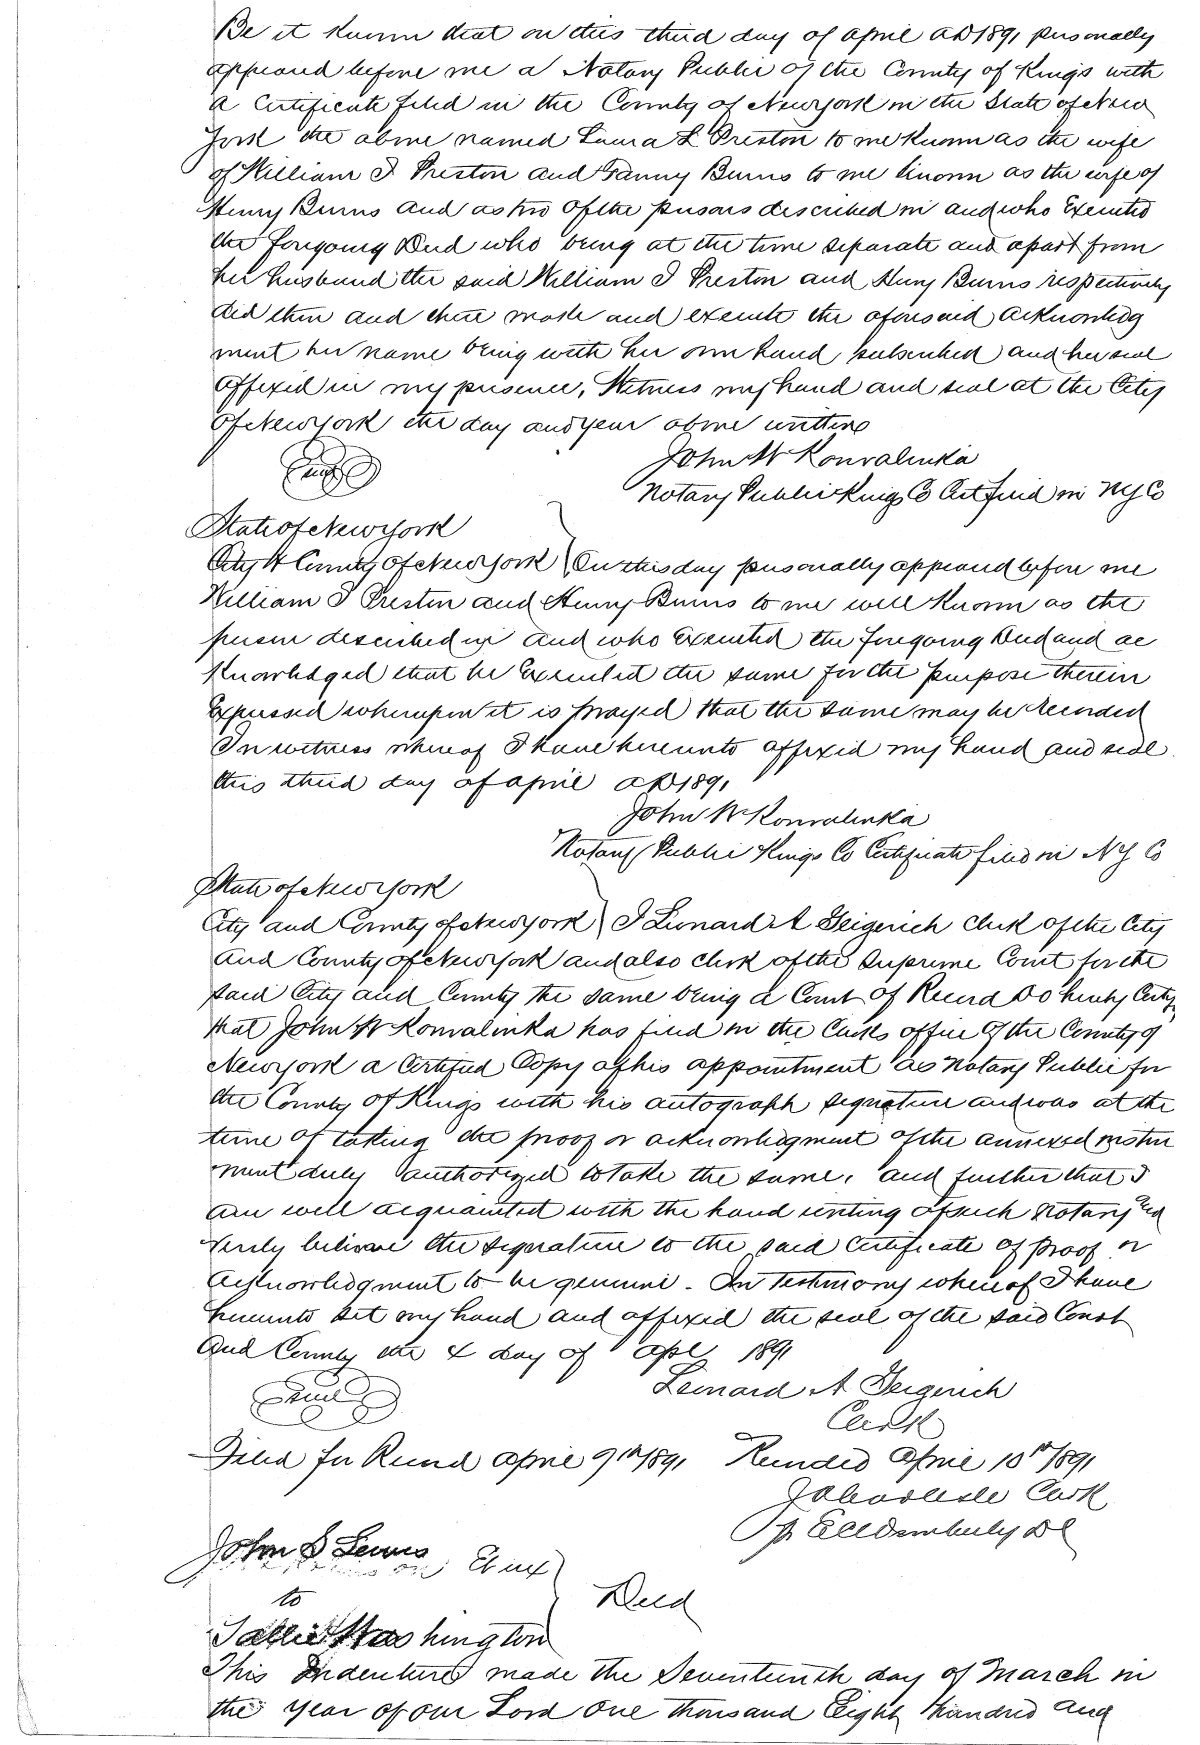 Be it known that on this third day of april AD 1891 personally
appeared before me a Notary Public of the County of Kings with
a Certificate filed in the County of New York in the State of New
York the above named Laura L Preston to me known as the wife
of William I Preston and Fanny Burns to me known as the wife of
Henry Burns and as two of the persons described in and who Executed
the foregoing Deed who being at the time separate and apart from
her husband the said William I Preston and Henry Burns respectively
did then and there make and execute the aforesaid acknowledg
ment her name being with her own hand subscribed and her seal
affixed in my presence, Witness my hand and seal at the City
of New York the day and year above written
John W Konvalinka
Seal
Notary Public Kings Co Cert filed in NY Co
State of New York
City & County of New York } On this day personally appeared before me
William I Preston and Henry Burns to me well known as the
person described in and who Executed the foregoing Deed and ac
knowledged that he Executed the same for the purpose therein
Expressed whereupon it is prayed that the same may be Recorded
In witness whereof I have hereunto affixed my hand and seal
this third day of april AD 1891
John W Konvalinka
Notary Public Kings Co Certificate filed in NY Co
State of New York
City and County of New York } I Leonard A Geigerich Clerk of the City
and County of New York and also clerk of the Supreme Court for the
said City and County the same being a Court of Record Do hereby Certify
that John W Konvalinka has filed in the Clerks office of the County of
New York a Certified Copy of his appointment as Notary Public for
the County of Kings with his autograph signature and was at the
time of taking the proof or acknowledgment of the annexed instru
ment duly authorized to take the same, and further that I
am well acquainted with the hand writing of such Notary and
Verily believe the signature to the said certificate of proof or
acknowledgment to be genuine. In Testimony whereof I have
hereunto set my hand and affixed the seal of the said Court
and County the 4 day of Apl 1891
Seal
Leonard A Geigerich
Clerk
Filed for Record April 9th 1891 Recorded April 10th 1891
Clerk
DC
John S Lewis Et ux }
to } Deed
Sallie Washington
This Indenture made the Seventeenth day of March in
the year of our Lord One thousand Eight Hundred and